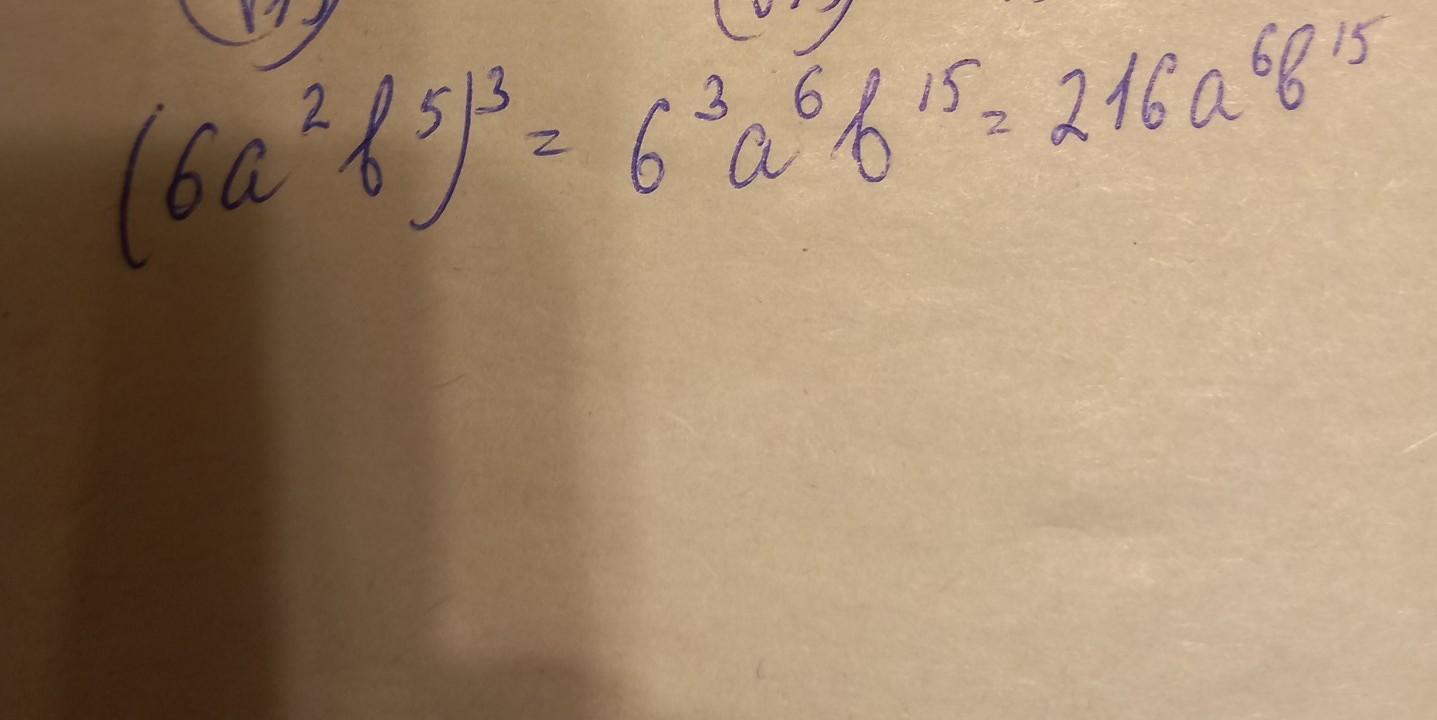 (6a²b⁵)³ = 6³a⁶b¹⁵ = 216a⁶b¹⁵